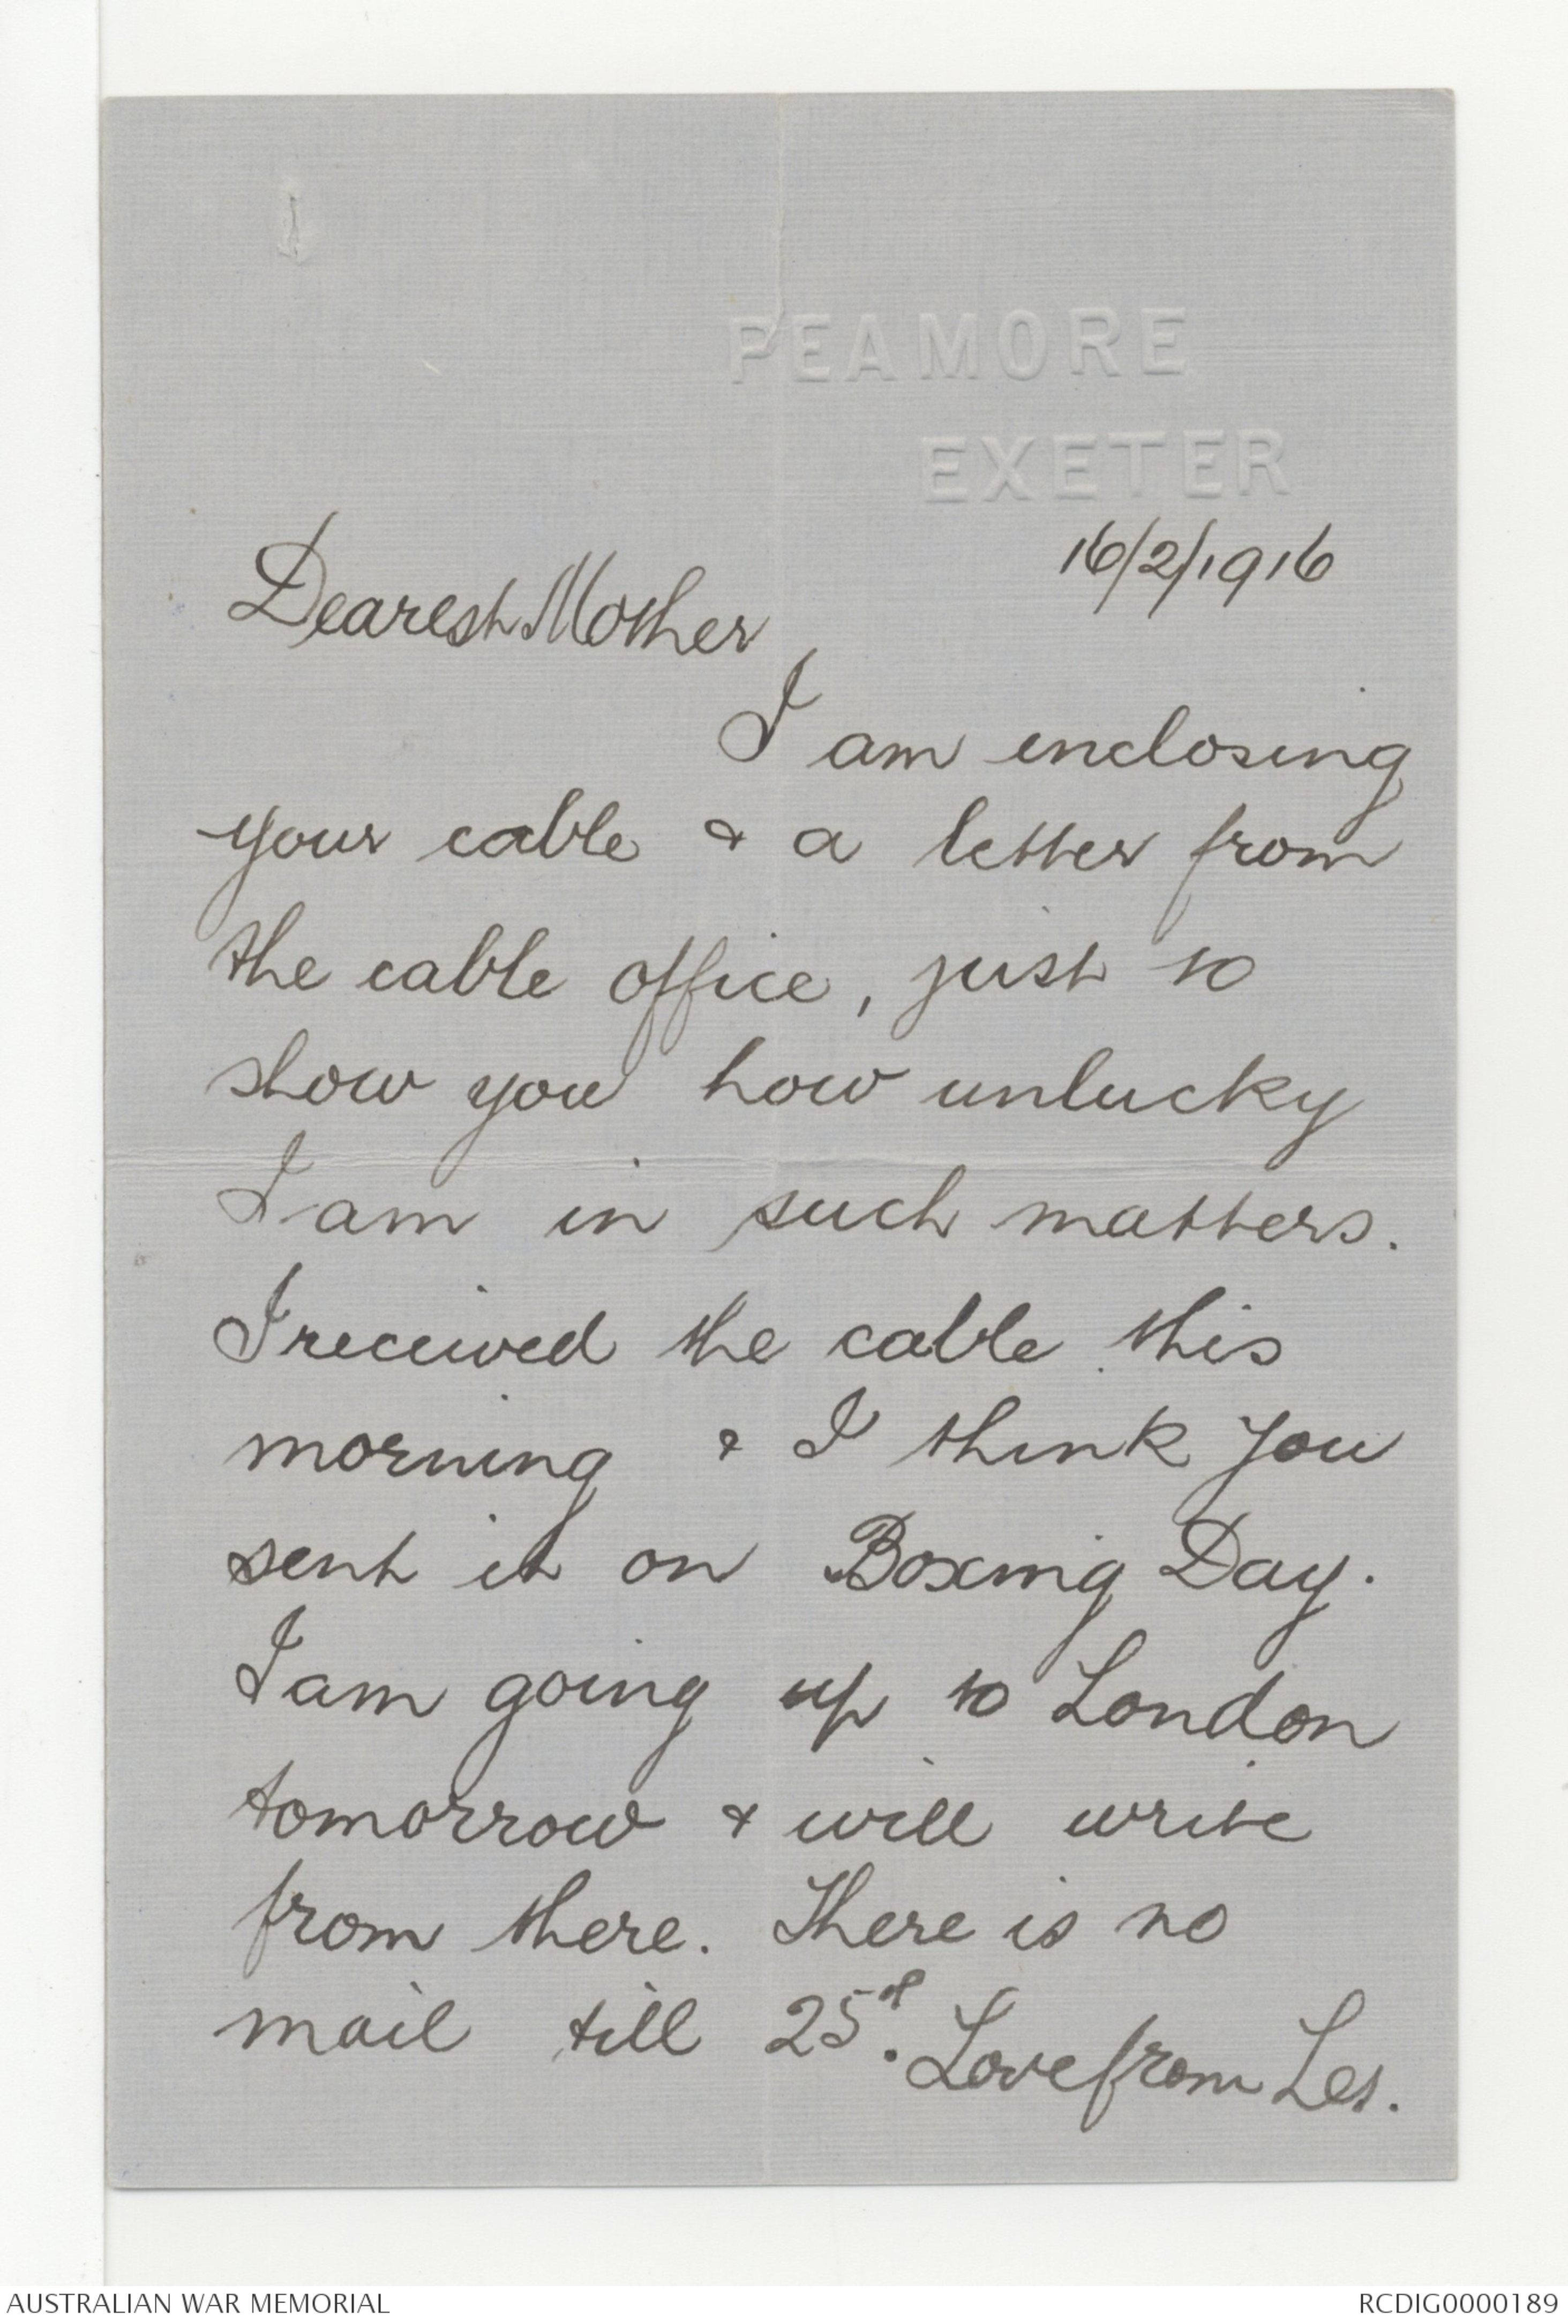 PEAMORE
EXETER
16/2/1916
Dearest Mother
I am enclosing
your cable & a letter from
the cable office, just to
show you how unlucky
I am in such matters.
I received the cable this
morning & I think you
sent it on Boxing Day.
I am going up to London
tomorrow & will write
from there. There is no
mail till 25th. Love from Les.
AUSTRALIAN WAR MEMORIAL
RCDIG0000189